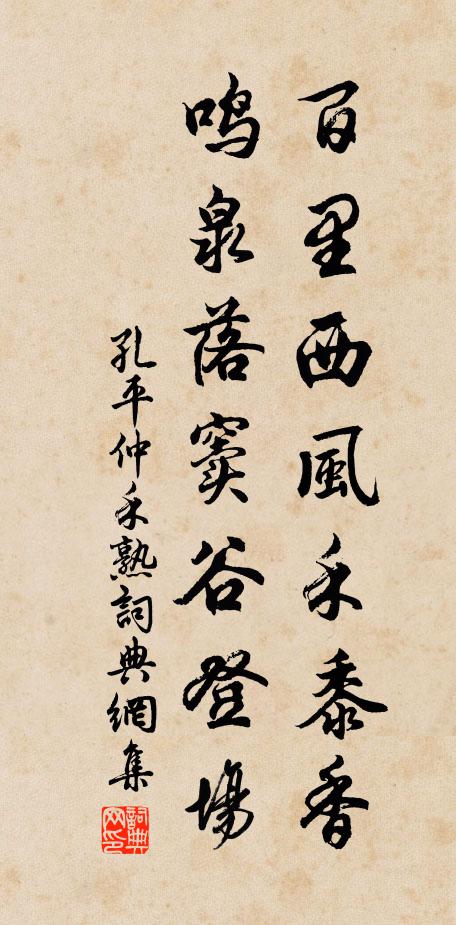 百里西風禾黍香
鳴泉落竇谷登場
孔平仲禾熟詞典網集
詞典網印